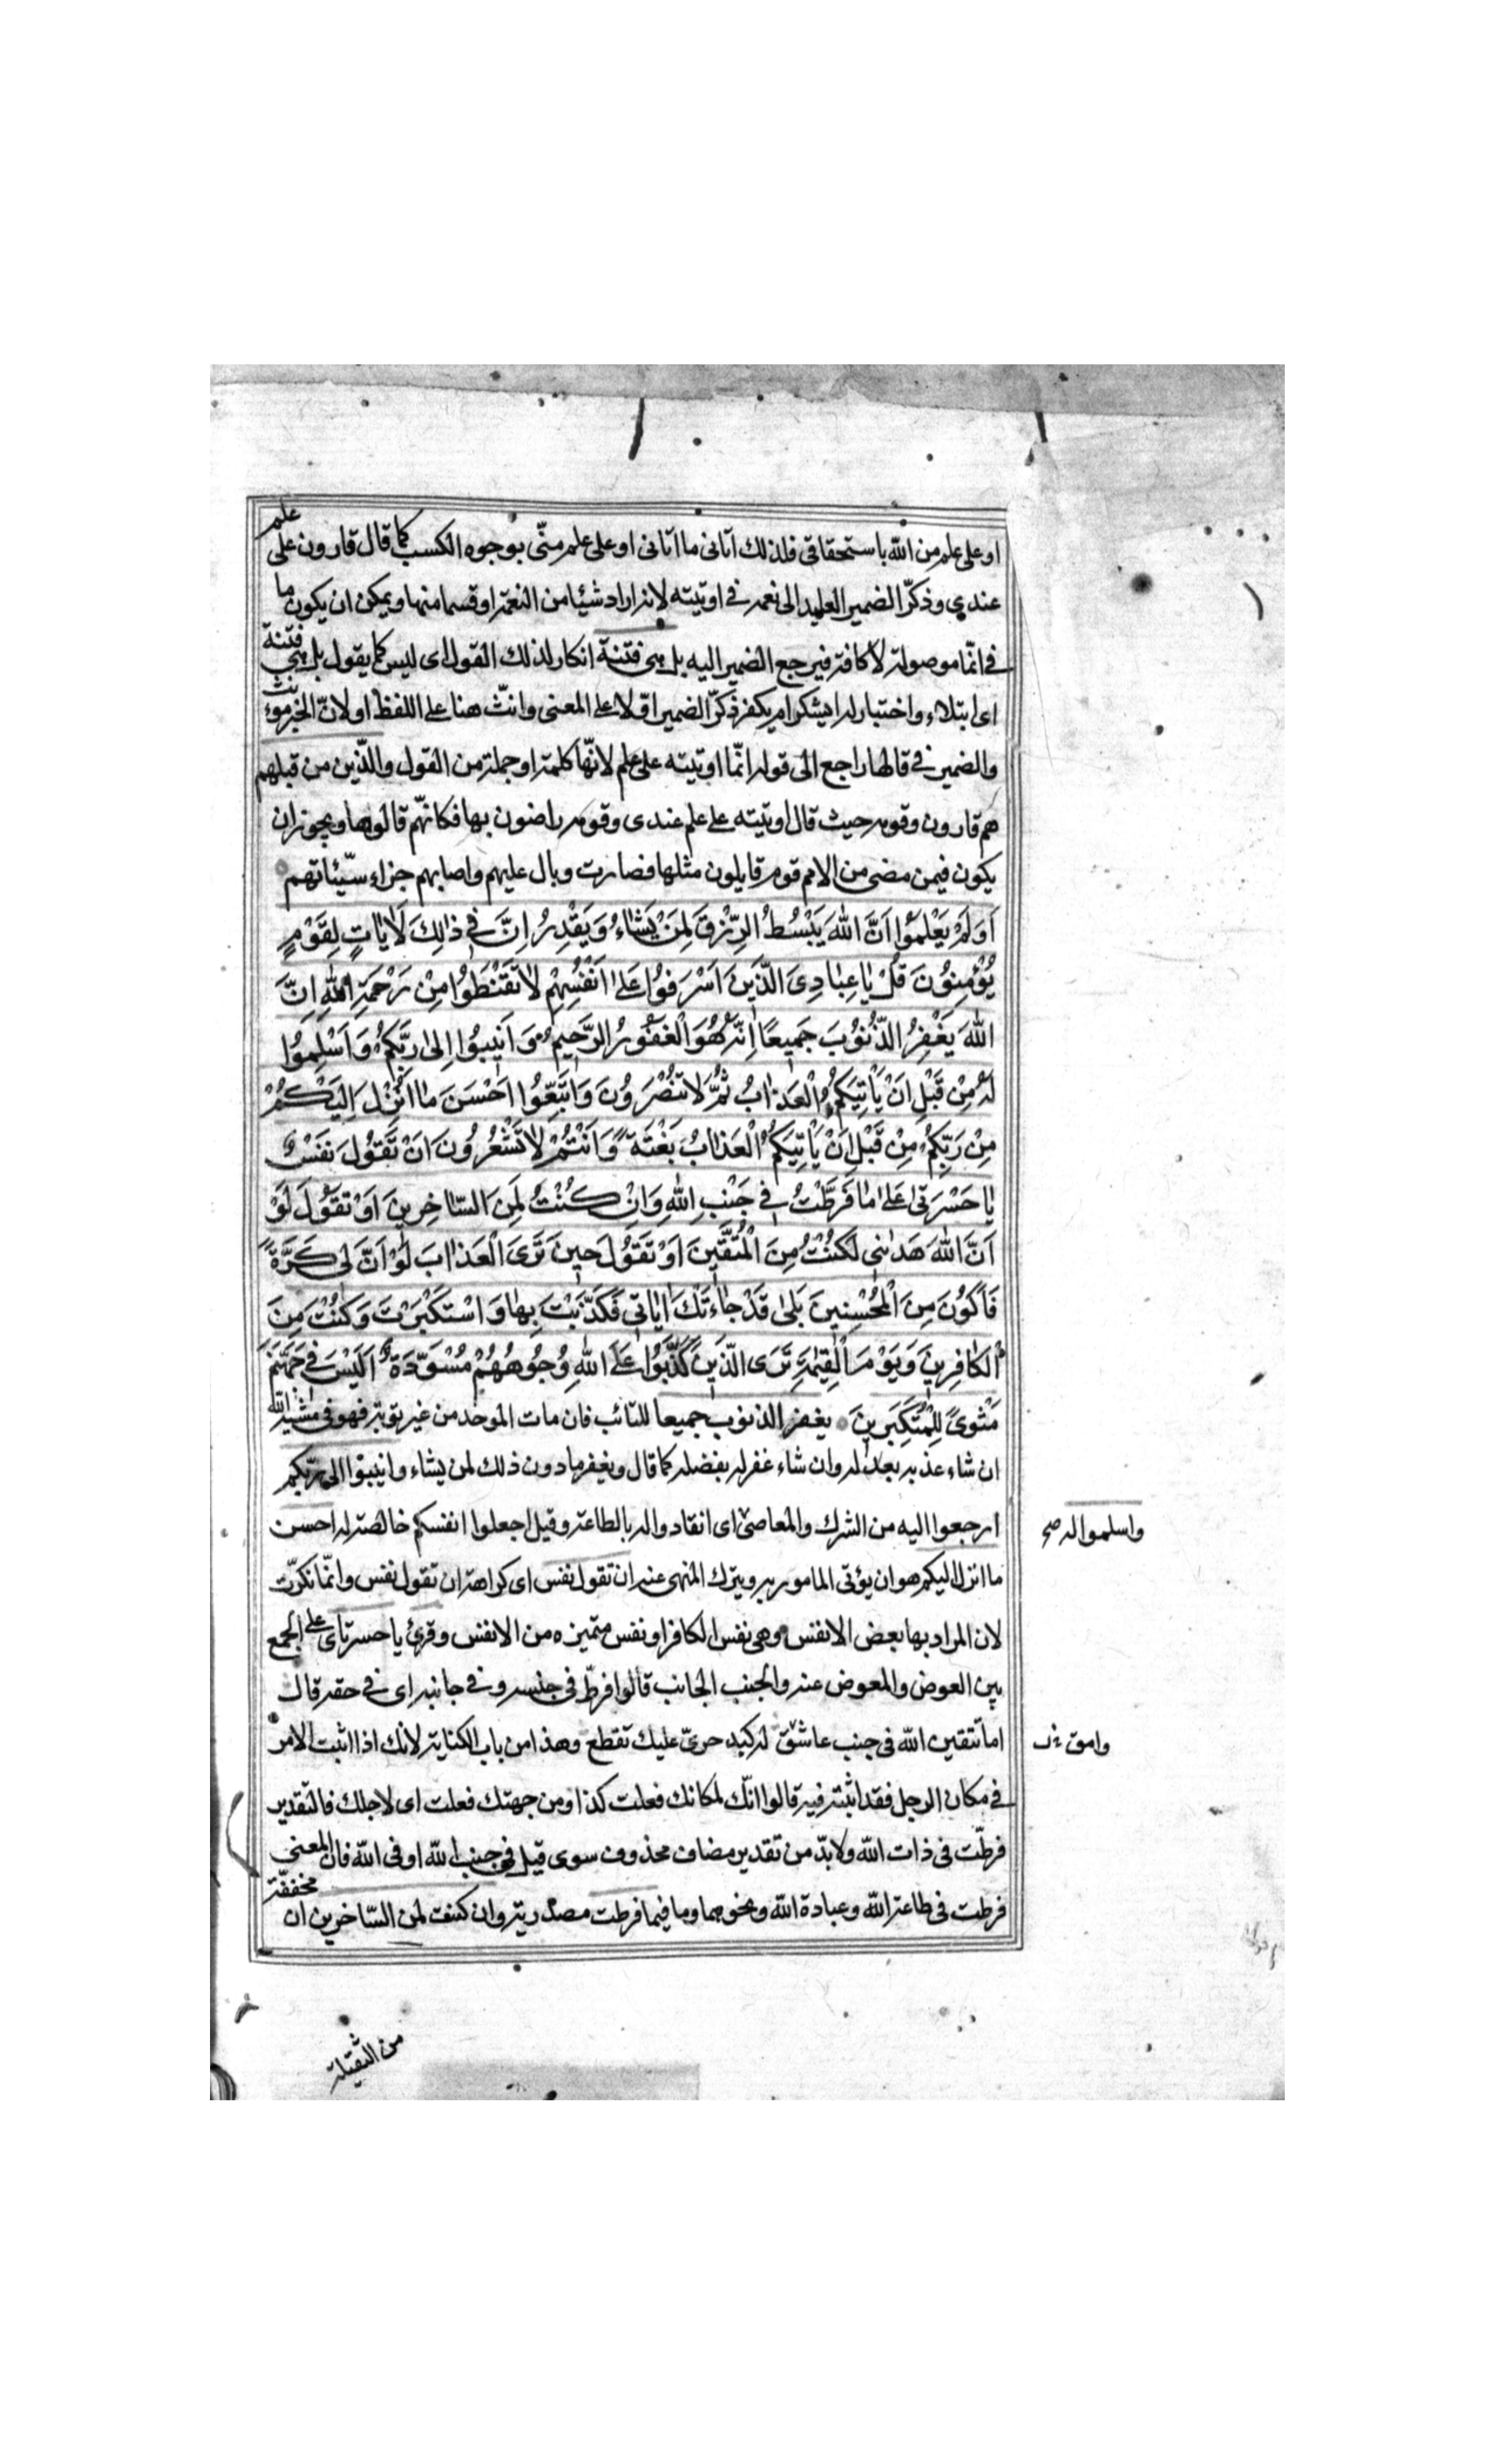 او على علم من الله باستحقاقى فلذلك اتانى ما اتانى او على علم منّى بوجوه الكسب كما قال قارون على علم
عندي وذكّر الضمير العايد الى نعمه فى اوتيته لانه اراد شيئا من النعمة او قسما منها ويمكن ان يكون ما
فى انّما موصولة لا كافة فيرجع الضمير اليه بل هى فتنة انكار لذلك القول اى ليس كما يقول بل هى فتنة
اى ابتلاء واختبار له ايشكر ام يكفر ذكّر الضمير اوّلا على المعنى وانّث هنا على اللفظ او لانّ الخبر مونث
والضمير فى قالها راجع الى قوله انّما اوتيته على علم لانّها كلمة او جملة من القول والّذين من قبلهم
هم قارون وقومه حيث قال اوتيته على علم عندى وقومه راضون بها فكانهّم قالوها ويجوز ان
يكون فيمن مضى من الامم قوم قايلون مثلها فصارت وبال عليهم واصابهم جزاء سيّئاتهم
اَوَلَمْ يَعْلَمُوا اَنَّ اللهَ يَبْسُطُ الرِّزْقَ لِمَنْ يَشَاءُ وَيَقْدِرُ اِنَّ فِى ذٰلِكَ لَاٰيَاتٍ لِقَوْمٍ
يُؤْمِنُونَ قُلْ يَا عِبَادِىَ الَّذِينَ اَسْرَفُوا عَلىٰ اَنْفُسِهِمْ لَا تَقْنَطُوا مِنْ رَحْمَةِ اللهِ اِنَّ
اللهَ يَغْفِرُ الذُّنُوبَ جَمِيعًا اِنَّهُ هُوَ الْغَفُورُ الرَّحِيمُ وَاَنِيبُوا اِلىٰ رَبِّكُمْ وَاَسْلِمُوا
لَهُ مِنْ قَبْلِ اَنْ يَأْتِيَكُمُ الْعَذَابُ ثُمَّ لَا تُنْصَرُونَ وَاتَّبِعُوا اَحْسَنَ مَا اُنْزِلَ اِلَيْكُمْ
مِنْ رَبِّكُمْ مِنْ قَبْلِ اَنْ يَأْتِيَكُمُ الْعَذَابُ بَغْتَةً وَاَنْتُمْ لَا تَشْعُرُونَ اَنْ تَقُولَ نَفْسٌ
يَا حَسْرَتىٰ عَلىٰ مَا فَرَّطْتُ فِى جَنْبِ اللهِ وَاِنْ كُنْتُ لَمِنَ السَّاخِرِينَ اَوْ تَقُولَ لَوْ
اَنَّ اللهَ هَدَانِى لَكُنْتُ مِنَ الْمُتَّقِينَ اَوْ تَقُولَ حِينَ تَرَى الْعَذَابَ لَوْ اَنَّ لِى كَرَّةً
فَاَكُونَ مِنَ الْمُحْسِنِينَ بَلىٰ قَدْ جَاءَتْكَ اٰيَاتِى فَكَذَّبْتَ بِهَا وَاسْتَكْبَرْتَ وَكُنْتَ مِنَ
الْكَافِرِينَ وَيَوْمَ الْقِيٰمَةِ تَرَى الَّذِينَ كَذَبُوا عَلَى اللهِ وُجُوهُهُمْ مُسْوَدَّةٌ اَلَيْسَ فِى جَهَنَّمَ
مَثْوىً لِلْمُتَكَبِّرِينَ يغفر الذنوب جميعا للتائب فان مات الموحد من غير توبة فهو فى مشيّة الله
ان شاء عذبه بعدله وان شاء غفر له بفضله كما قال ويغفر ما دون ذلك لمن يشاء وانيبوا الى ربّكم
ارجعوا اليه من الشرك والمعاصى اى انقادوا له بالطاعة وقيل اجعلوا انفسكم خالصة له احسن
واسلموا له صح
ما انزل اليكم هو ان يؤتى المامور به ويترك المنهى عنه ان تقول نفس اى كراهة ان تقول نفس وانّما نكّرت
لان المراد بها بعض الانفس وهى نفس الكافر او نفس متميزه من الانفس وقرئ يا حسرتاى على الجمع
بين العوض والمعوض عنه والجنب الجانب قالوا فرطّ فى جنبه وفى جانبه اى فى حقه قال
اما تتقين الله فى جنب عاشق له كبد حرىّ عليك تقطع وهذا من باب الكناية لانك اذا اثبت الامر
وامق
فى مكان الرجل فقد اثبته فيه قالوا انّك لمكانك فعلت كذا ومن جهتك فعلت اى لاجلك فالتقدير
فرطّت فى ذات الله ولا بدّ من تقدير مضاف محذوف سوى قيل فى جنب الله او فى الله فان المعنى
فرطت فى طاعة الله وعبادة الله ونحوهما وما فيما فرطت مصدرية وان كنت لمن السّاخرين ان مخففة
من الثقيلة